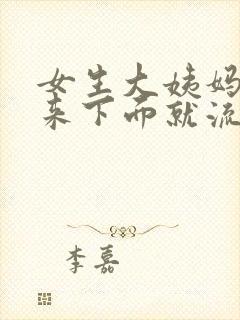 女生大姨妈
来下面就流
李嘉